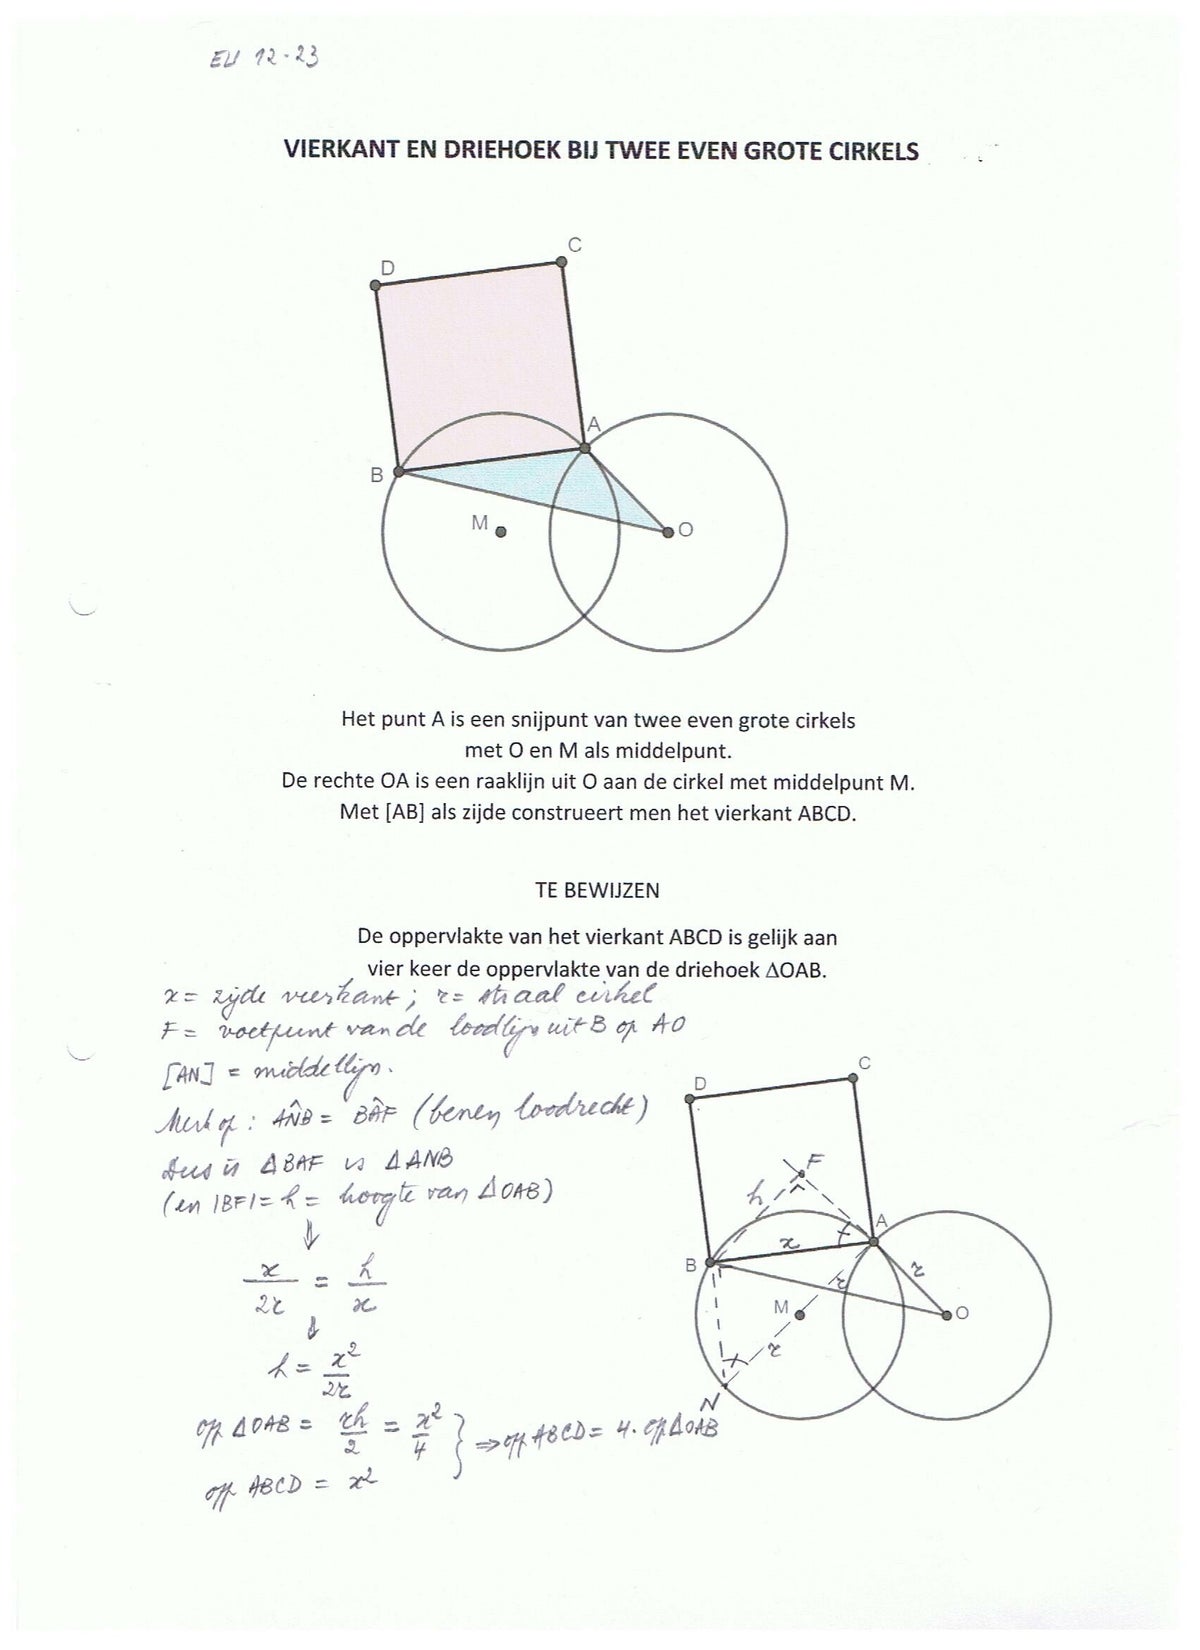 EU 12-23
VIERKANT EN DRIEHOEK BIJ TWEE EVEN GROTE CIRKELS
D
C
A
B
M
O
Het punt A is een snijpunt van twee even grote cirkels
met O en M als middelpunt.
De rechte OA is een raaklijn uit O aan de cirkel met middelpunt M.
Met [AB] als zijde construeert men het vierkant ABCD.
TE BEWIJZEN
De oppervlakte van het vierkant ABCD is gelijk aan
vier keer de oppervlakte van de driehoek ΔOAB.
x = zijde vierkant ; r = straal cirkel
F = voetpunt van de loodlijn uit B op AO
[AN] = middellijn.
Merk op : AN̂B = BÂF (benen loodrecht)
Dus is ΔBAF ∽ ΔANB
(en |BF| = h = hoogte van ΔOAB)
⇓
x/2r = h/x
⇓
h = x²/2r
opp ΔOAB = rh/2 = x²/4 } ⇒ opp ABCD = 4. opp ΔOAB
opp ABCD = x²
D
C
F
h
A
x
B
r
r
M
O
r
N